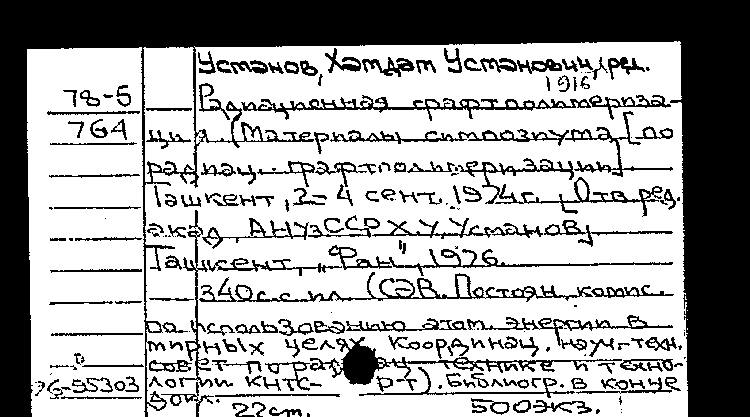 Усманов, Хамдам Усманович, ред.
1916
78-5
764
Радиационная графтполимериза-
ция. (Материалы симпозиума [по
радиац. графтполимеризации].
Ташкент, 2-4 сент. 1974г. [Отв. ред.
акад. АН УзССР Х.У. Усманов]
Ташкент, "Фан", 1976.
340с. с ил. (СЭВ. Постоян. комис.
по использованию атом. энергии в
мирных целях. Координац. науч.-техн.
совет по рад ац. технике и техно-
логии КНТС- Р-Т). Библиогр. в конце
докл.
76-55303
22см. 500экз.